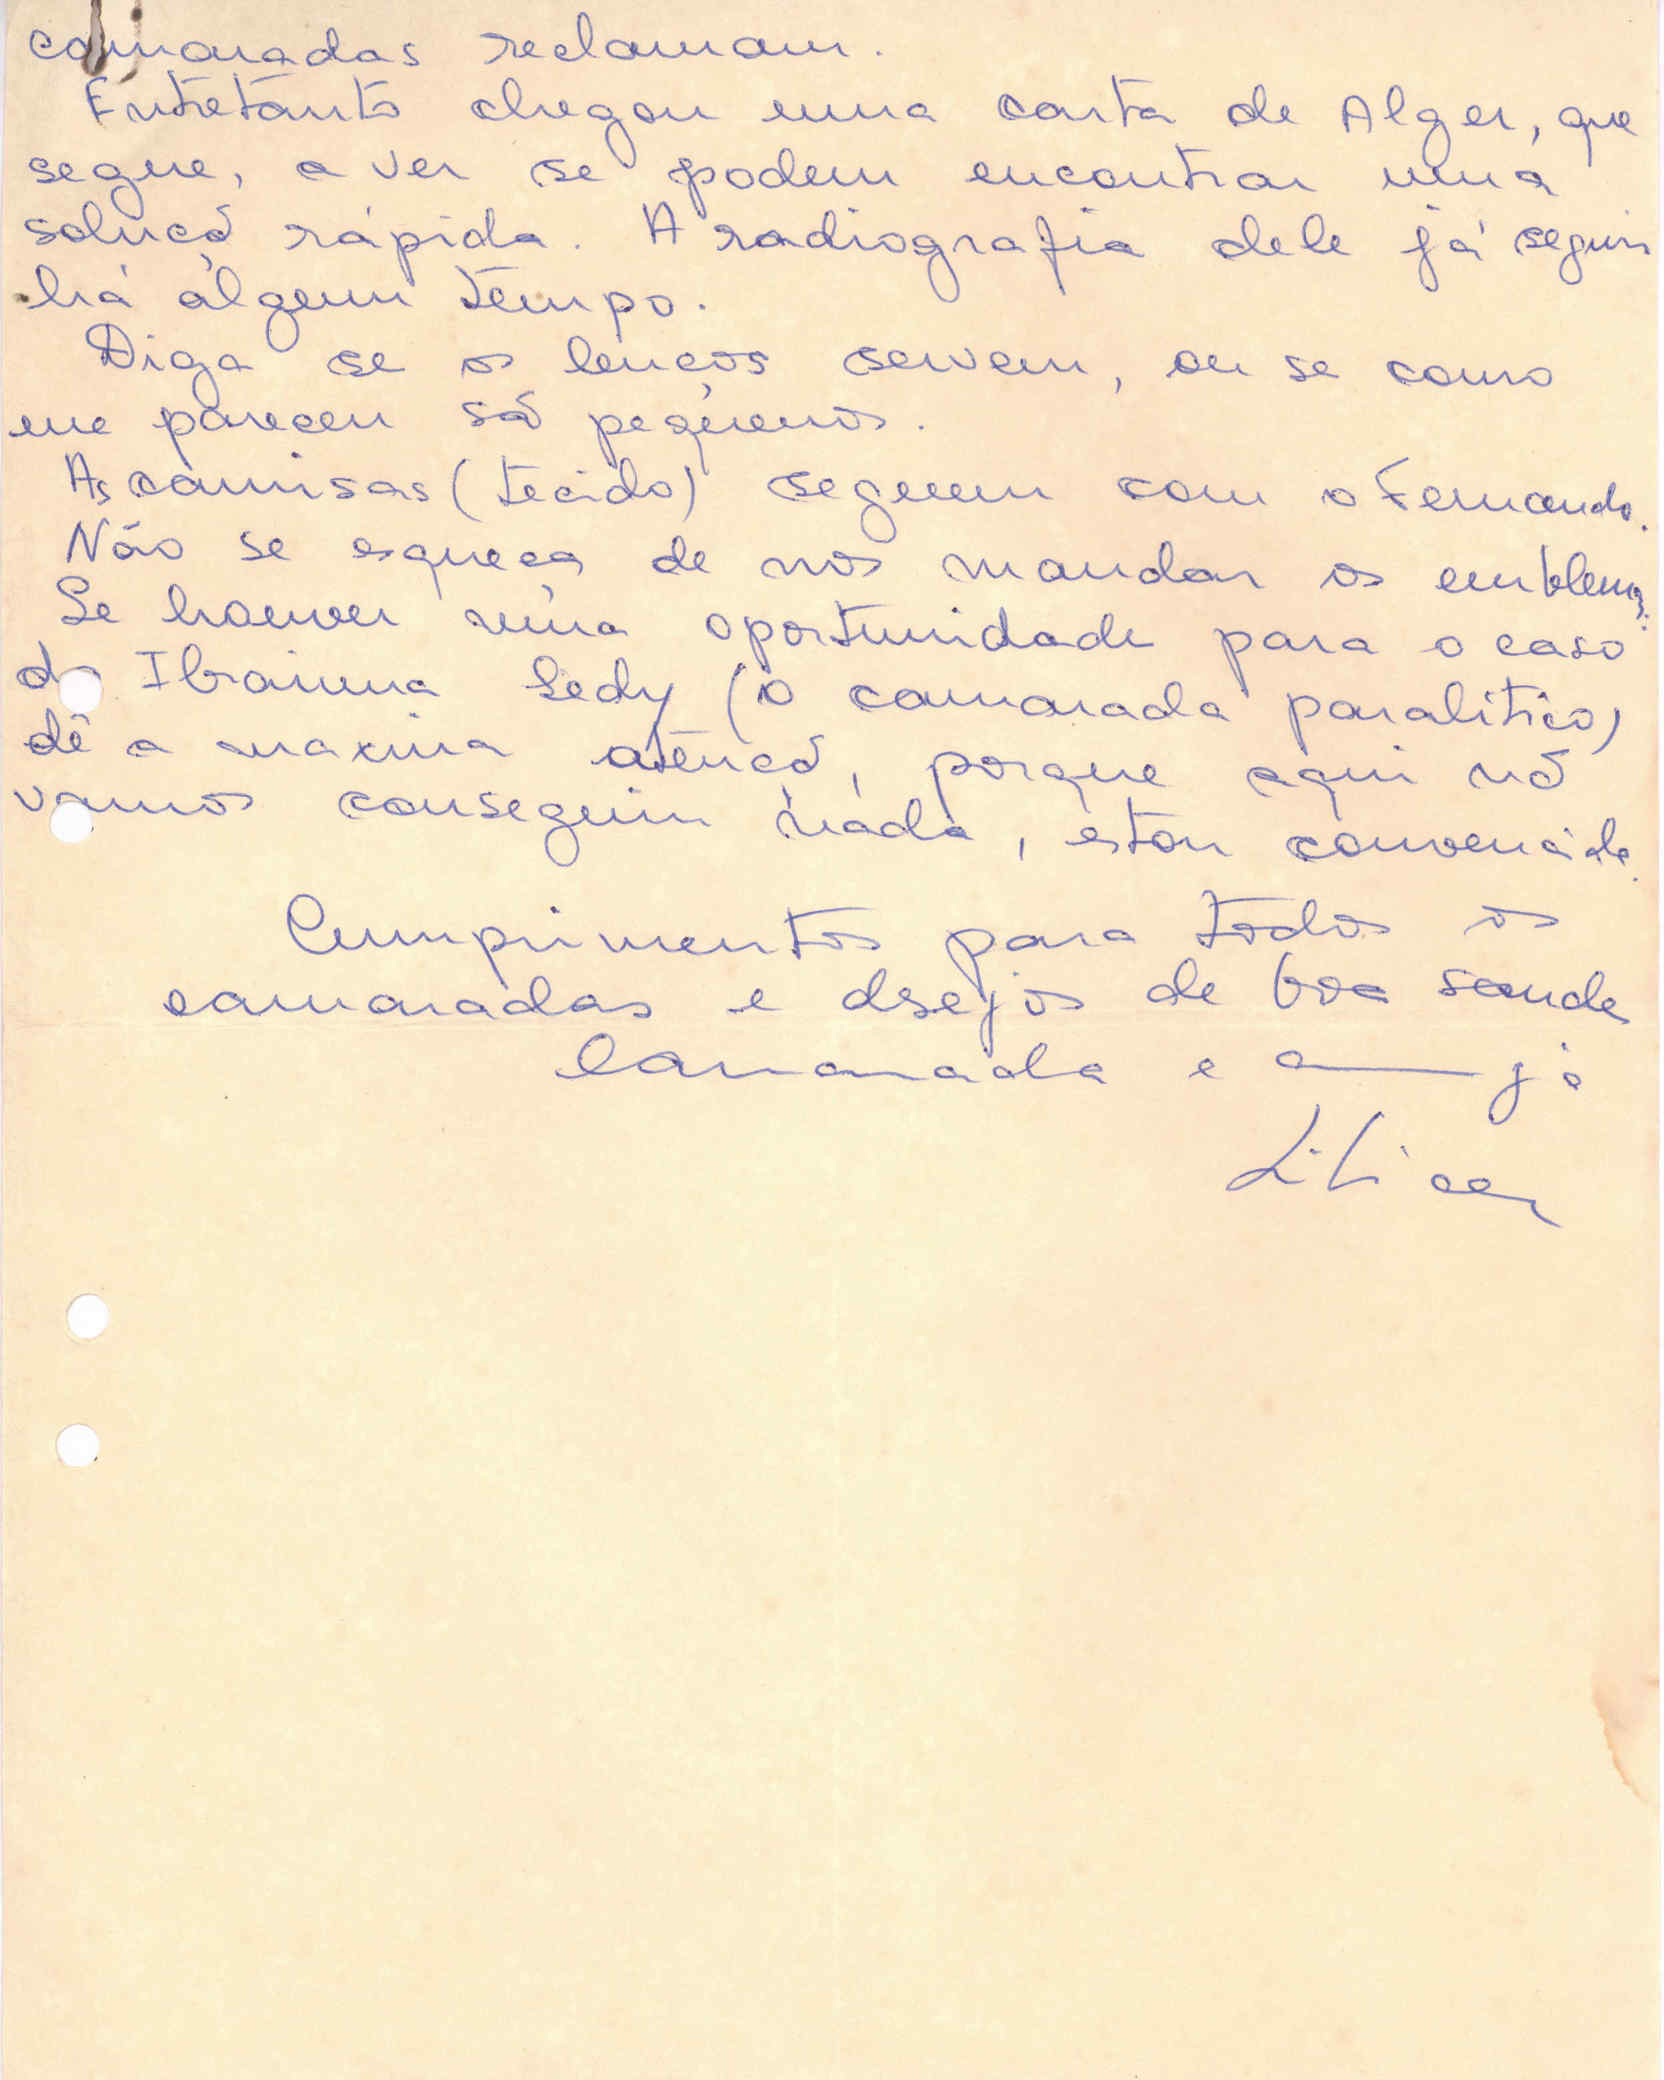 camaradas reclamam.
Entretanto chegou uma carta de Alger, que
segue, a ver se podem encontrar uma
soluçõ rápida. A radiografia dele já seguiu
há algum tempo.
Diga se os lenços servem, ou se como
me parecem sõ pequenos.
As camisas (tecido) seguem com o Fernando.
Não se esqueça de nos mandar os emblemas.
Se houver uma oportunidade para o caso
do Ibraima Sedy (o camarada paralitico)
dê a maxima atençõ, porque aqui nõ
vamos conseguir nada, estou convencida.
Cumprimentos para todos os
camaradas e dsejos de boa saude
Camarada e